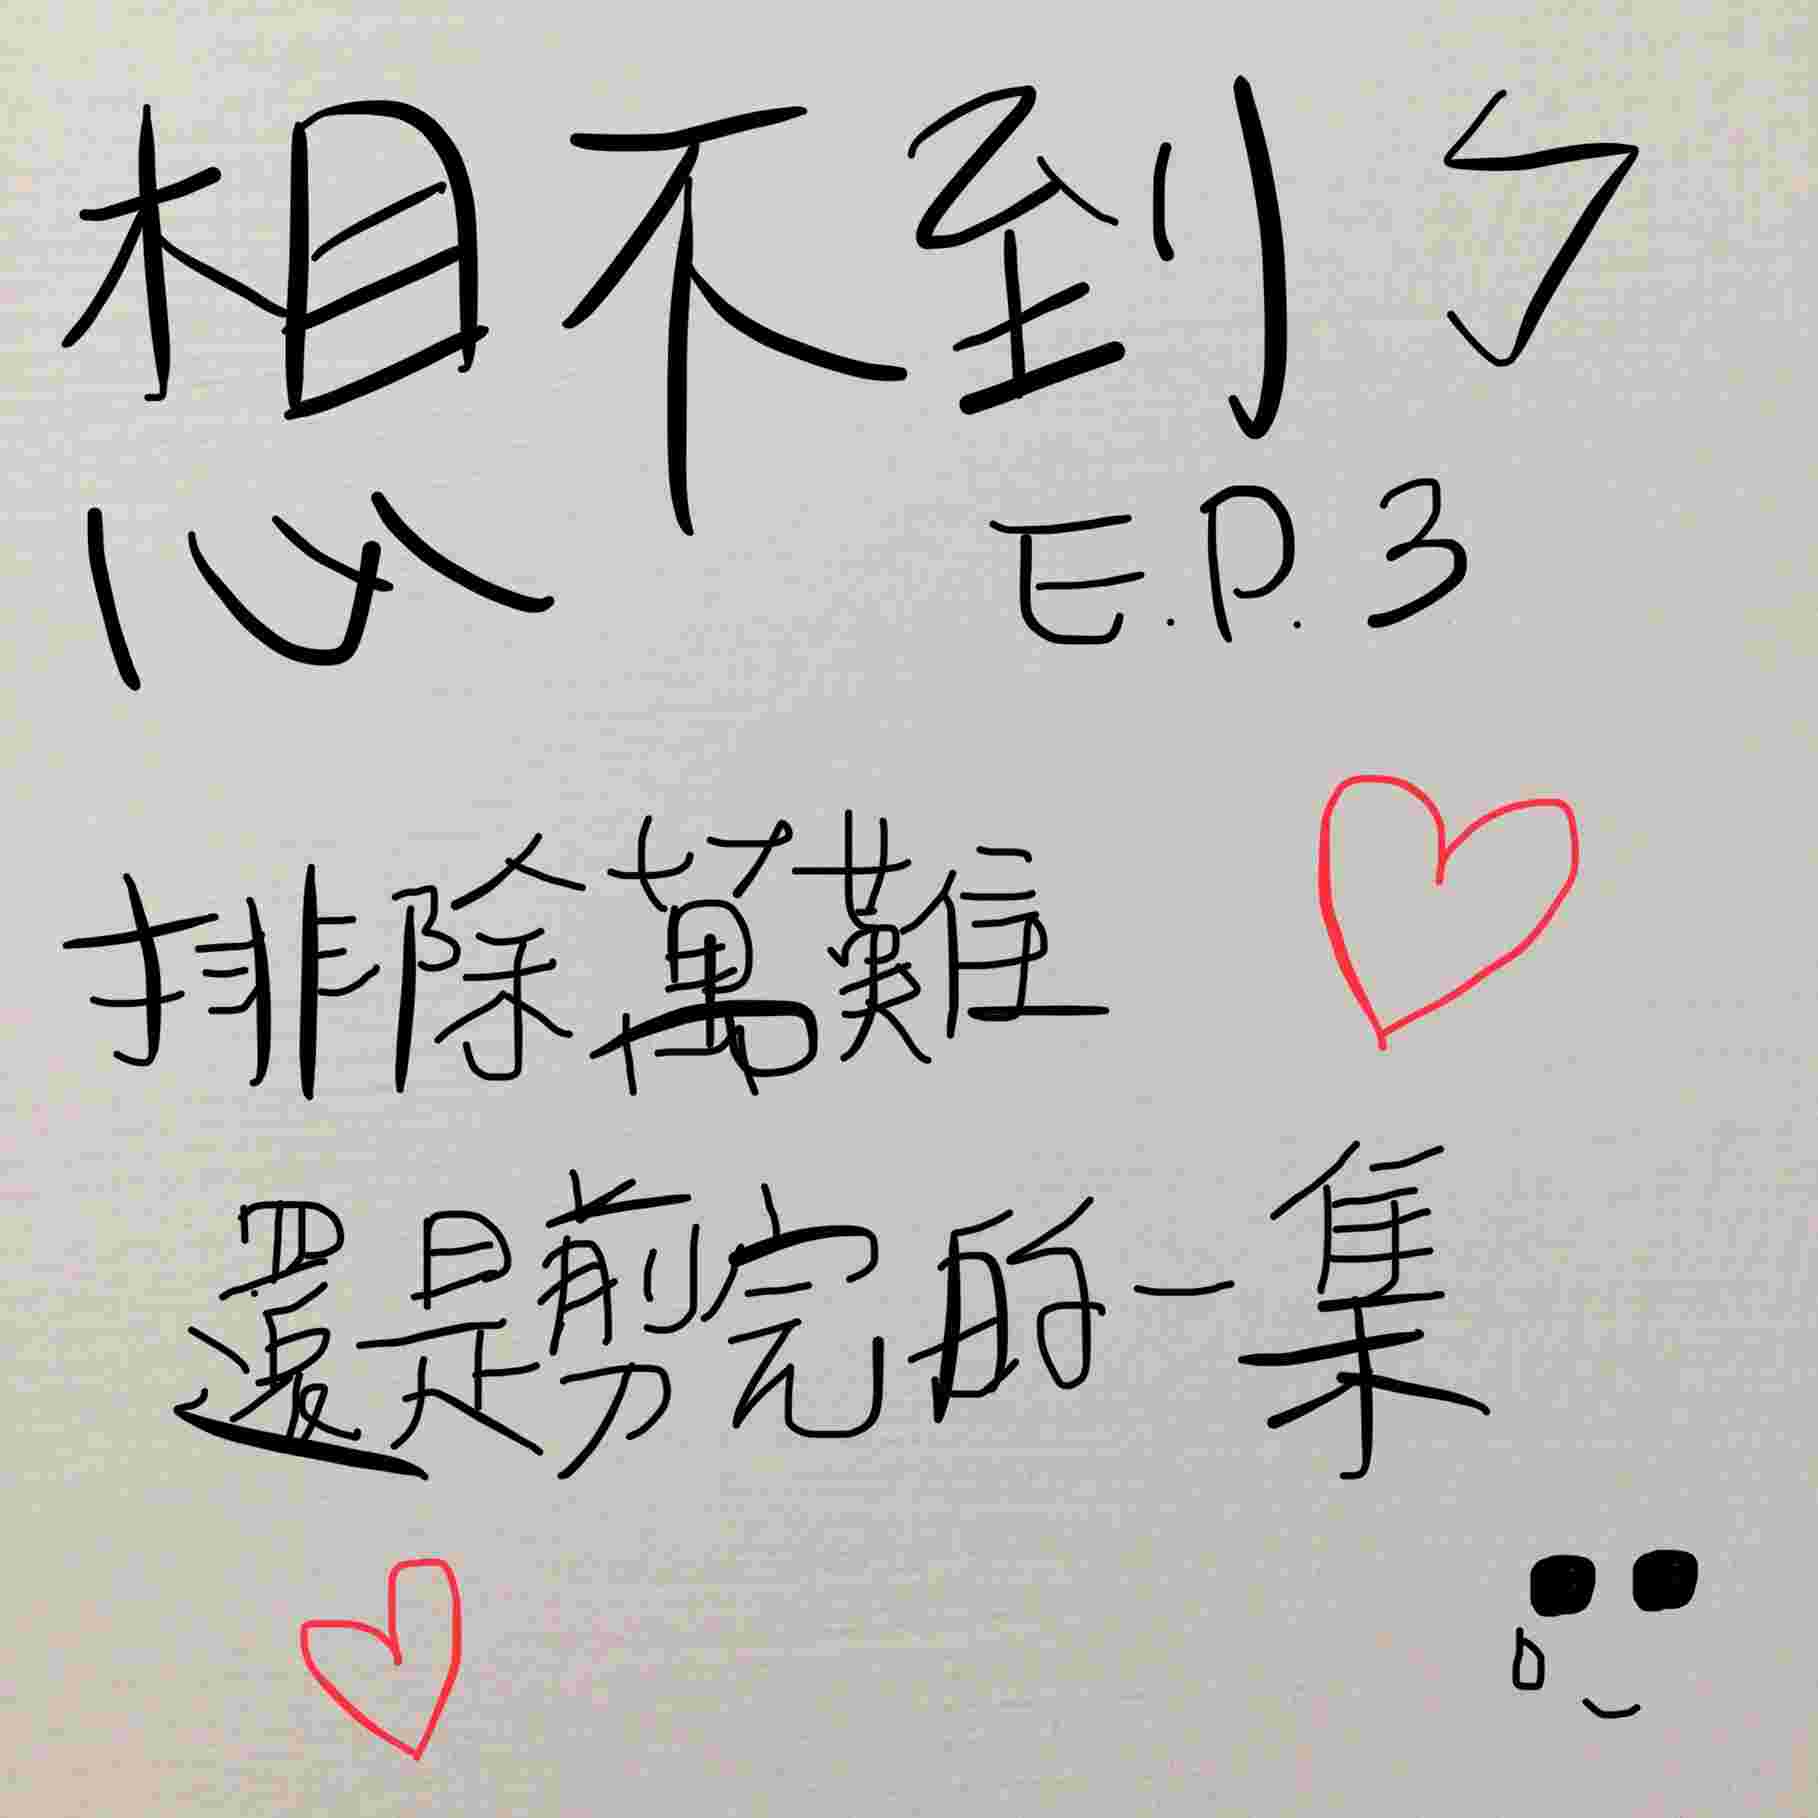 想不到ㄣ
E.P.3
排除萬難
還是剪完的一集